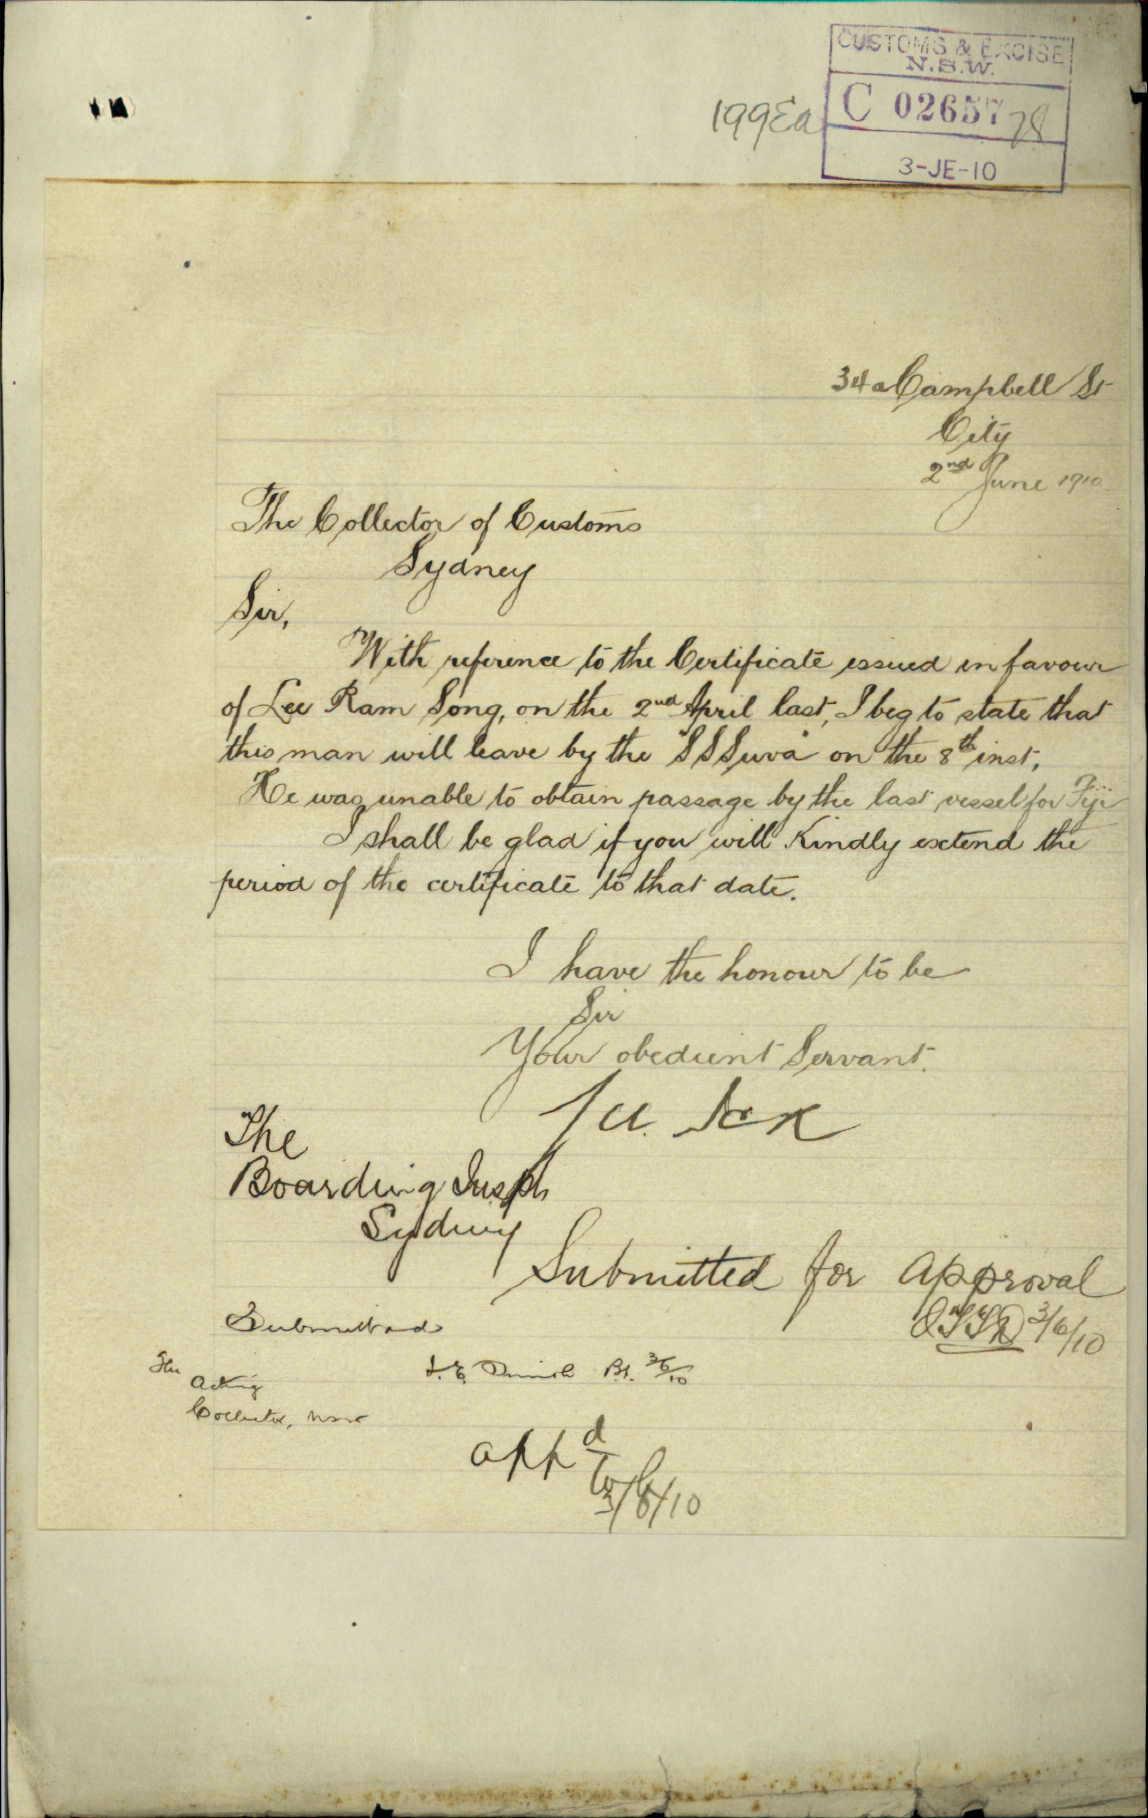 CUSTOMS & EXCISE
N.S.W.
C 02657
3-JE-10
34a Campbell St
City
2nd June 1910
The Collector of Customs
Sydney
Sir,
With reference to the Certificate issued in favour
of Lee Ram Song, on the 2nd April last, I beg to state that
this man will leave by the "S S Suva" on the 8th inst,
He was unable to obtain passage by the last vessel for Fiji
I shall be glad if you will Kindly extend the
period of the certificate to that date.
I have the honour to be
Sir
Your obedient Servant.
The
Boarding Inspr
Sydney
Submitted for approval
3/6/10
Submitted
3/6/10
The
Acting
Collector, NSW
appd
3/6/10